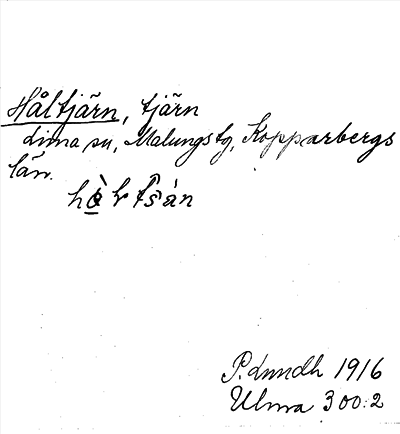 Håltjärn, tjärn
Lima sn, Malungs tg, Kopparbergs
län.
P. Lundh 1916
Ulma 300:2